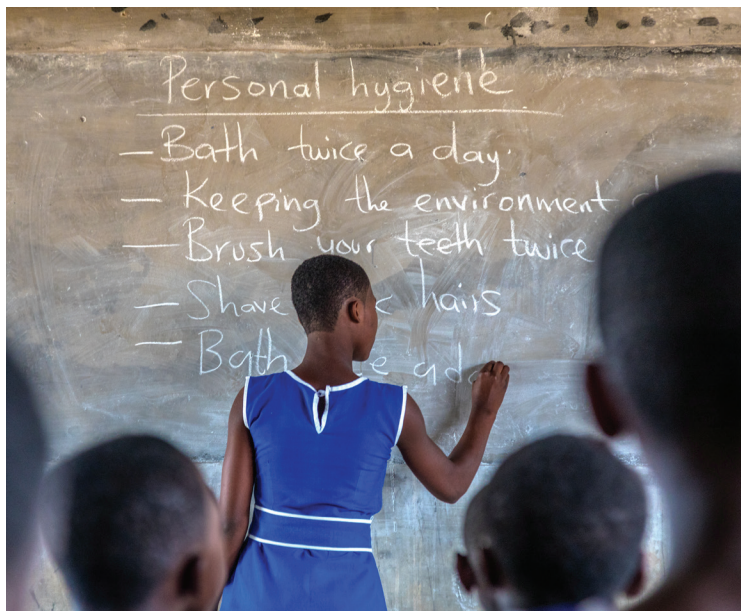 Personal hygiene
– Bath twice a day.
– Keeping the environment
– Brush your teeth twice
– Shave hairs
– Bath